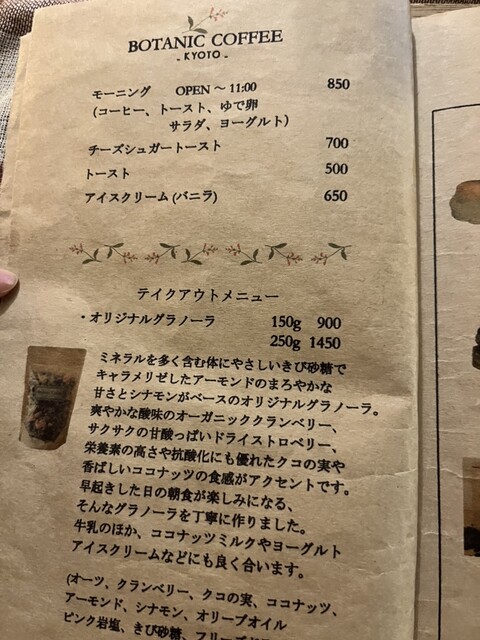 BOTANIC COFFEE
- KYOTO -
モーニング OPEN ～ 11:00 850
(コーヒー、トースト、ゆで卵
サラダ、ヨーグルト)
チーズシュガートースト 700
トースト 500
アイスクリーム (バニラ) 650
テイクアウトメニュー
・オリジナルグラノーラ 150g 900
250g 1450
ミネラルを多く含む体にやさしいきび砂糖で
キャラメリゼしたアーモンドのまろやかな
甘さとシナモンがベースのオリジナルグラノーラ。
爽やかな酸味のオーガニッククランベリー、
サクサクの甘酸っぱいドライストロベリー、
栄養素の高さや抗酸化にも優れたクコの実や
香ばしいココナッツの食感がアクセントです。
早起きした日の朝食が楽しみになる、
そんなグラノーラを丁寧に作りました。
牛乳のほか、ココナッツミルクやヨーグルト
アイスクリームなどにも良く合います。
(オーツ、クランベリー、クコの実、ココナッツ、
アーモンド、シナモン、オリーブオイル
ピンク岩塩、きび砂糖、フリーズド